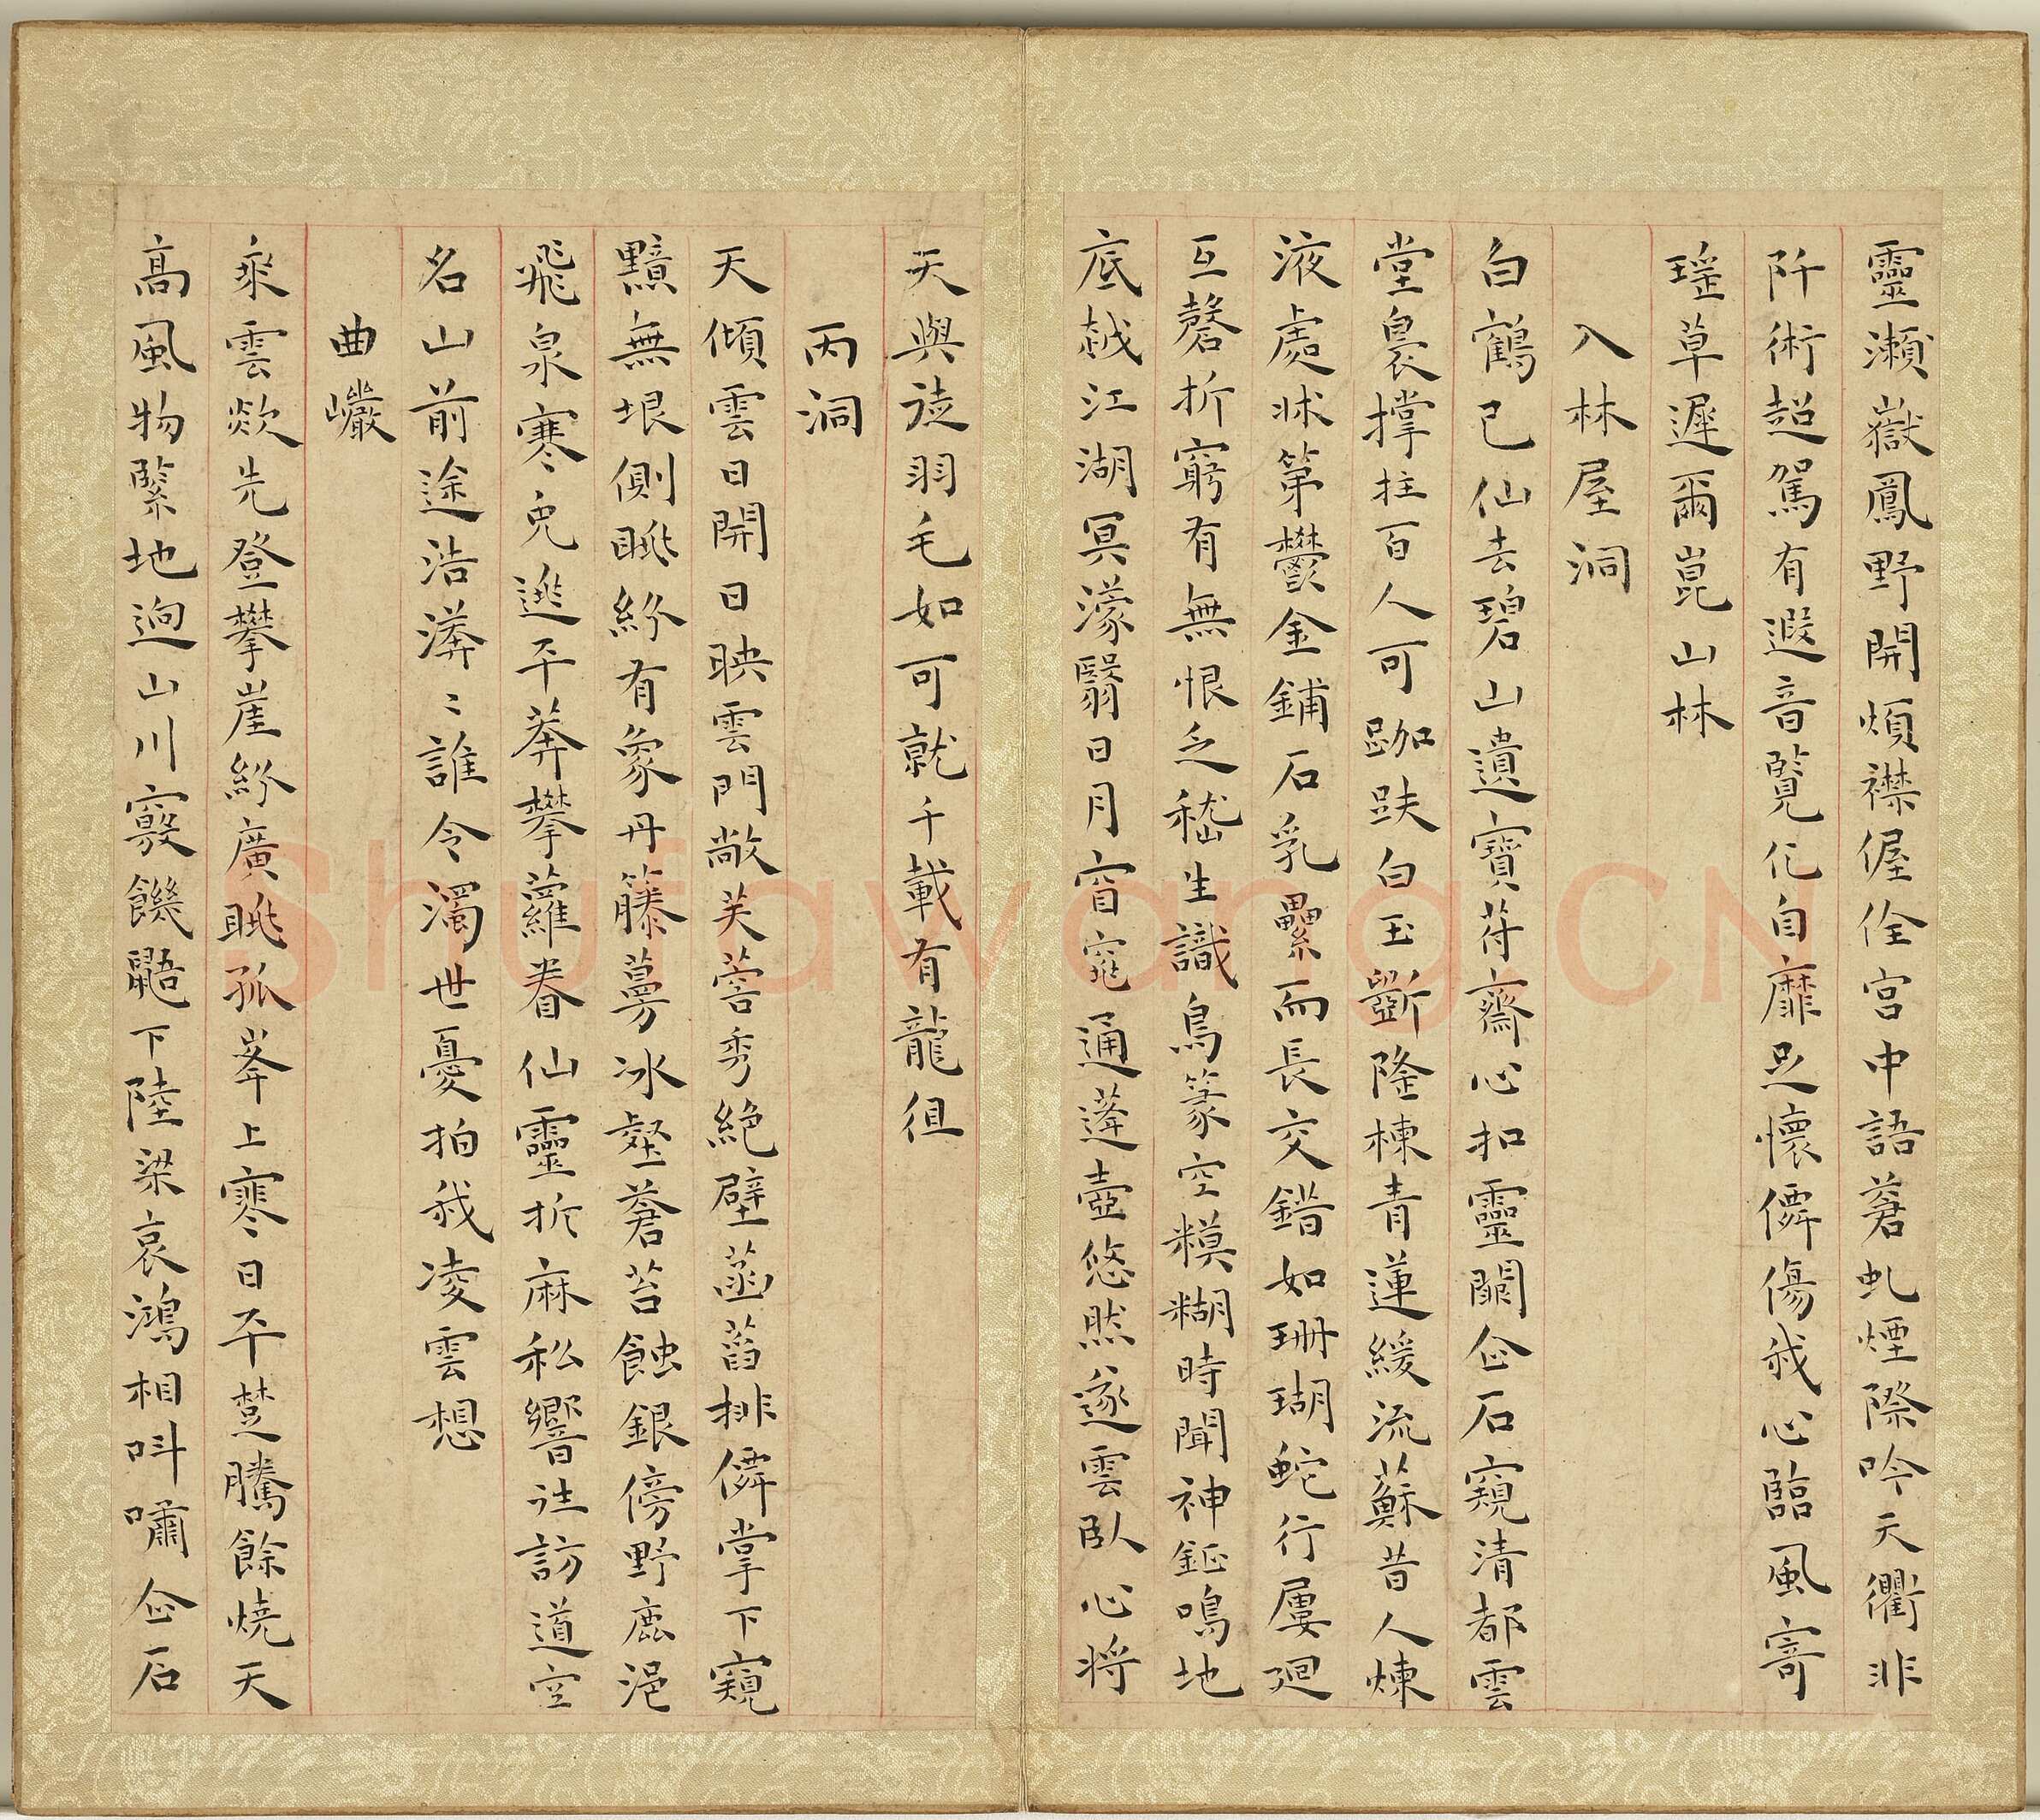 靈瀨嶽鳳野開煩襟偓佺宮中語蒼虬煙際吟天衢非
阡術超駕有遐音覽化自靡足懷僊傷我心臨風寄
瑶草遲爾崑山林
入林屋洞
白鶴已仙去碧山遺寶符齋心扣靈關企石窺清都雲
堂裊撑拄百人可跏趺白玉斲隆棟青蓮緩流蘇昔人煉
液處牀第鬱金鋪石乳纍而長交錯如珊瑚蛇行屢迴
互磬折窮有無恨乏嵇生識鳥篆空糢糊時聞神鉦鳴地
底越江湖冥濛翳日月窅窕通蓬壺悠然遂雲臥心將
天與徒羽毛如可就千載有龍徂
丙洞
天傾雲日開日映雲門敞芙蓉秀絕壁菡萏排僊掌下窺
黯無垠側眺紛有象丹籐蔓冰壑蒼苔蝕銀傍野鹿浥
飛泉寒兔逃平莽攀蘿眷仙靈折麻私響往訪道空
名山前途浩漭〻誰令濁世憂拍我凌雲想
曲巘
乘雲欻先登攀崖紛廣眺孤峯上寒日平楚騰餘燒天
高風物緊地迥山川窾饑鼯下陸梁哀鴻相叫嘯企石
Shufawang.CN